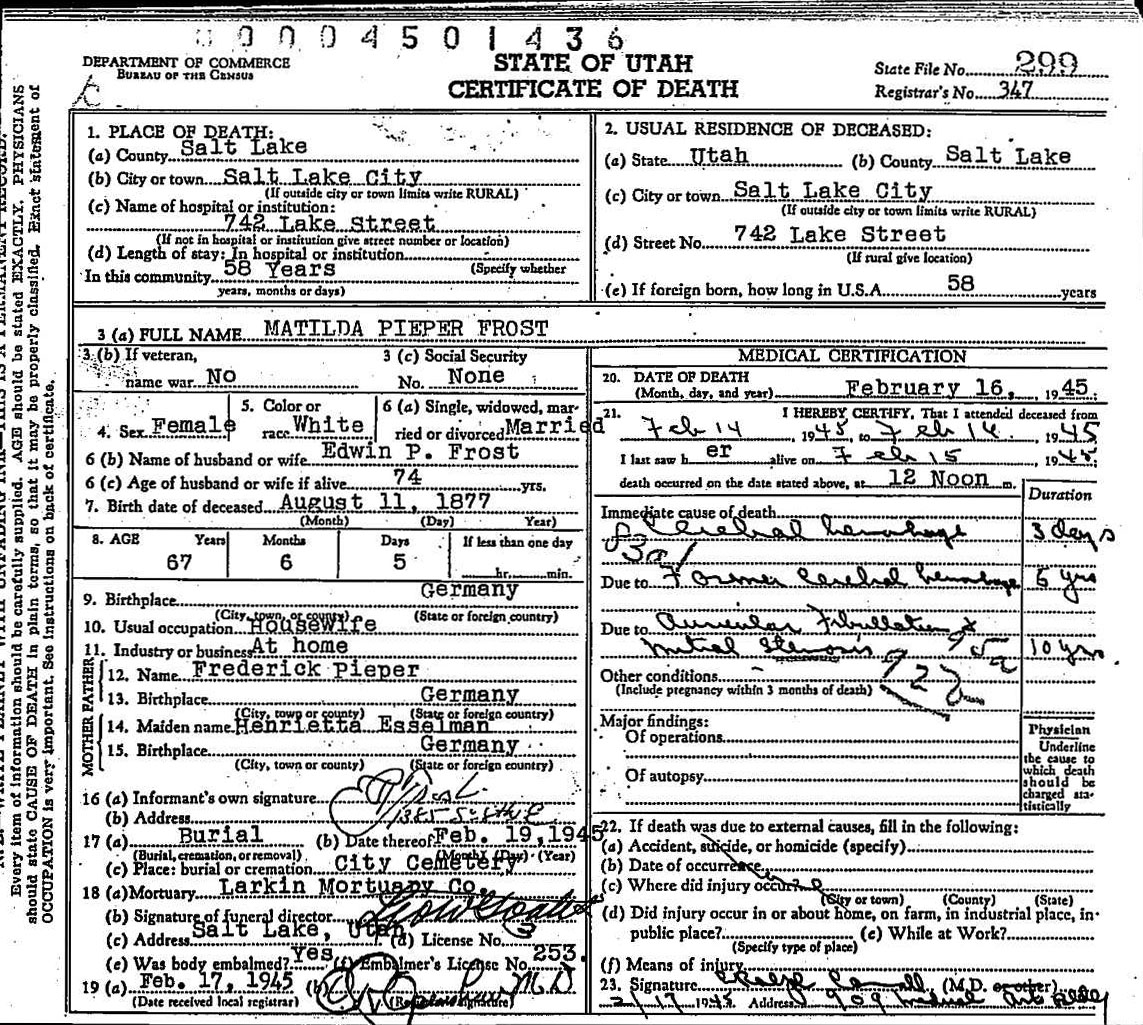 0004501436
DEPARTMENT OF COMMERCE
BUREAU OF THE CENSUS
STATE OF UTAH
CERTIFICATE OF DEATH
State File No. 299
Registrar's No. 347
1. PLACE OF DEATH:
(a) County Salt Lake
(b) City or town Salt Lake City
(If outside city or town limits write RURAL)
(c) Name of hospital or institution:
742 Lake Street
(If not in hospital or institution give street number or location)
(d) Length of stay: In hospital or institution
(Specify whether
In this community 58 Years
years, months or days)
2. USUAL RESIDENCE OF DECEASED:
(a) State Utah (b) County Salt Lake
(c) City or town Salt Lake City
(If outside city or town limits write RURAL)
(d) Street No. 742 Lake Street
(If rural give location)
(e) If foreign born, how long in U.S.A. 58 years
3 (a) FULL NAME MATILDA PIEPER FROST
3 (b) If veteran, name war No
3 (c) Social Security No. None
4. Sex Female
5. Color or race White
6 (a) Single, widowed, married or divorced Married
6 (b) Name of husband or wife Edwin P. Frost
6 (c) Age of husband or wife if alive 74 yrs.
7. Birth date of deceased August 11, 1877
(Month) (Day) Year)
8. AGE Years Months Days If less than one day
67 6 5 hr. min.
9. Birthplace Germany
(City, town, or county) (State or foreign country)
10. Usual occupation Housewife
11. Industry or business At home
FATHER
12. Name Frederick Pieper
13. Birthplace Germany
(City, town or county) (State or foreign country)
MOTHER
14. Maiden name Henrietta Esselman
15. Birthplace Germany
(City, town, or county) (State or foreign country)
16 (a) Informant's own signature
(b) Address
17 (a) Burial (b) Date thereof Feb. 19, 1945
(Burial, cremation, or removal) (Month) (Day) (Year)
(c) Place: burial or cremation City Cemetery
18 (a) Mortuary Larkin Mortuary Co.
(b) Signature of funeral director
(c) Address Salt Lake, Utah (d) License No.
(e) Was body embalmed? Yes (f) Embalmer's License No. 253
19 (a) Feb. 17, 1945 (b) M D
(Date received local registrar) (Registrar's signature)
MEDICAL CERTIFICATION
20. DATE OF DEATH
(Month, day, and year) February 16, 1945
21. I HEREBY CERTIFY, That I attended deceased from
Feb 14, 1945, to Feb 14. 1945
I last saw h er alive on Feb 15 1945
death occurred on the date stated above, at 12 Noon m.
Duration
Immediate cause of death
Cerebral hemorrhage 3 days
83a1
Due to Former Cerebral hemorrhage 5 yrs
Due to Auricular Fibrillation &
Mitral Stenosis 10 yrs.
92
Other conditions
(Include pregnancy within 3 months of death)
Major findings:
Of operations
Of autopsy
Physician
Underline
the cause to
which death
should be
charged sta-
tistically
22. If death was due to external causes, fill in the following:
(a) Accident, suicide, or homicide (specify)
(b) Date of occurrence
(c) Where did injury occur?
(City or town) (County) (State)
(d) Did injury occur in or about home, on farm, in industrial place, in-
public place? (e) While at Work?
(Specify type of place)
(f) Means of injury
23. Signature (M.D. or other)
2/17 1945 Address 909 Medical Arts Bldg
Every item of information should be carefully supplied. AGE should be stated EXACTLY. PHYSICIANS
should state CAUSE OF DEATH in plain terms, so that it may be properly classified. Exact statement of
OCCUPATION is very important. See instructions on back of certificate.